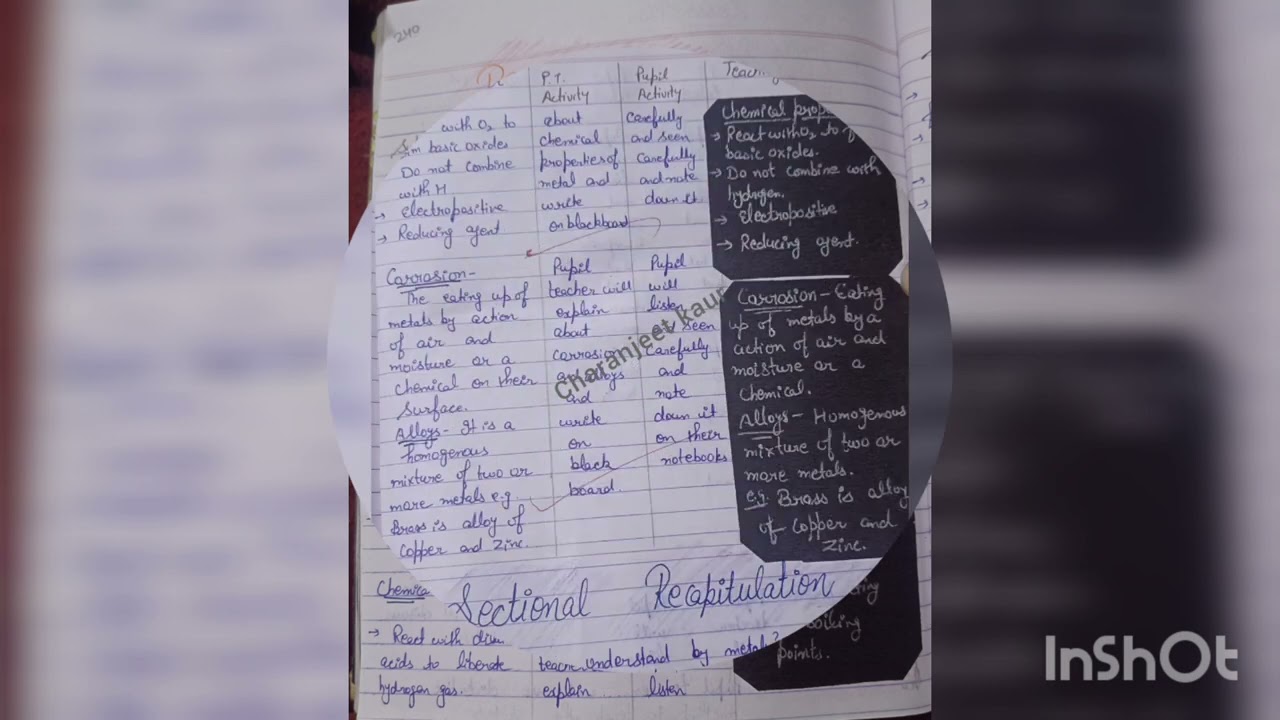 240
P.T. Pupil
Activity Activity
with O2 to about carefully
basic oxides chemical and seen
Do not combine properties of carefully
with H metal and and note
→ electropositive write down it
→ Reducing agent on blackboard
→ React with O2 to
basic oxides.
→ Do not combine with
hydrogen.
→ Electropositive
→ Reducing agent.
Carrosion- Pupil Pupil
The eating up of teacher will will
metals by action explain listen
of air and about seen
moisture or a carrosion carefully
chemical on their alloys and
surface. and note
Alloys- It is a write down it
homogenous on on their
mixture of two or black notebooks
more metals e.g. board.
Brass is alloy of
Copper and Zinc.
Carrosion- Eating
up of metals by a
action of air and
moisture or a
chemical.
Alloys- Homogenous
mixture of two or
more metals.
e.g. Brass is alloy
of Copper and
Zinc.
Charanjeet kaur
Sectional Recapitulation
→ React with
acids to liberate understand by metals?
hydrogen gas. explain listen
points.
InShOt